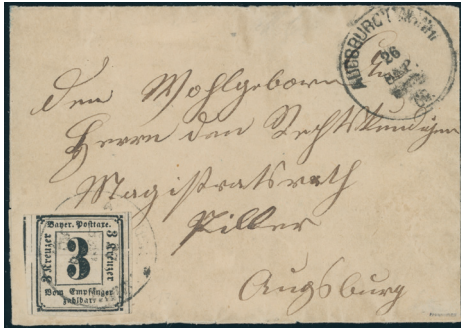 AUGSBURG
26
SEP.
Den Wohlgeborn
Herrn den Rechtskundigen
Magistratsrath
Piller
Augsburg
Bayer. Posttaxe.
3 Kreuzer
3
3 Kreuzer
Vom Empfänger
zahlbar